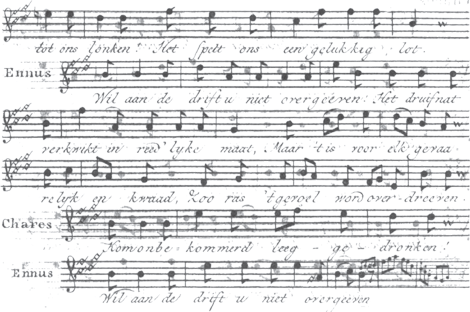 tot ons lonken! Het spelt ons een gelukkig lot.
Ennus
Wil aan de drift u niet overgeeven: Het druifnat
verkwikt in reed'lyke maat, Maar 't is voor elk gevaa
relyk en kwaad, Zoo ras 't gevoel word over-dreeven.
Chares
Kom onbe-kommerd leeg-ge-dronken!
Ennus
Wil aan de drift u niet overgeeven